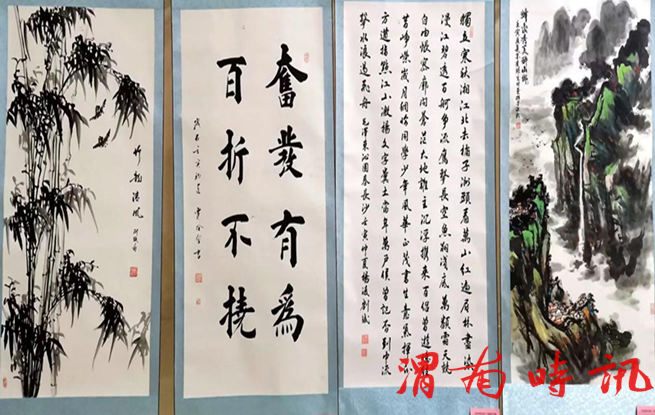 竹韵清风
奮發有為
百折不撓
獨立寒秋湘江北去橘子洲頭看萬山紅遍層林盡染
漫江碧透百舸爭流鷹擊長空魚翔淺底萬類霜天競
自由悵寥廓問蒼茫大地誰主沉浮攜來百侶曾遊憶往
昔崢嶸歲月稠恰同學少年風華正茂書生意氣揮斥
方遒指點江山激揚文字糞土當年萬戶侯曾記否到中流
擊水浪遏飛舟 毛澤東沁園春長沙壬寅仲夏
渭南時訊